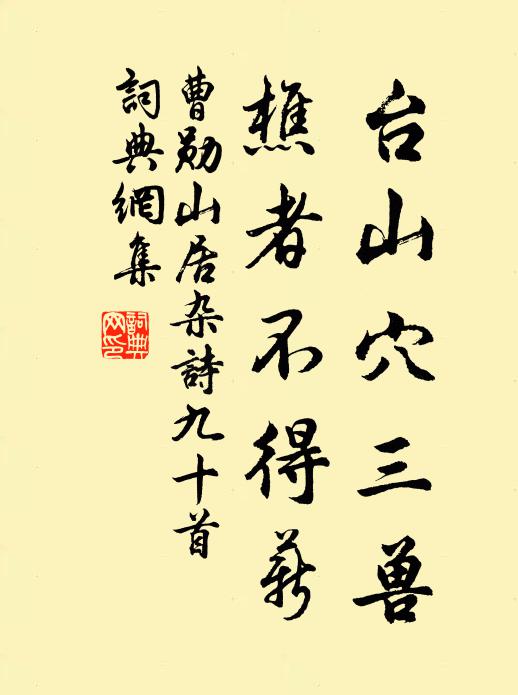 台山穴三兽
樵者不得薪
曹勋山居杂詩九十首
詞典網集
詞典網印